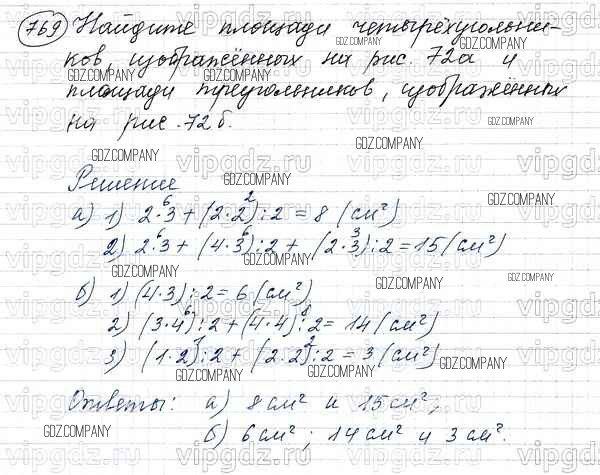 769 Найдите площади четырёхугольни-
ков, изображённых на рис. 72а и
площади треугольников, изображённых
на рис. 72б.
Решение
а) 1) 2·3 + (2·2):2 = 8 (см²)
2) 2·3 + (4·3):2 + (2·3):2 = 15 (см²)
б) 1) (4·3):2 = 6 (см²)
2) (3·4):2 + (4·4):2 = 14 (см²)
3) (1·2):2 + (2·2):2 = 3 (см²)
Ответы: а) 8 см² и 15 см²;
б) 6 см²; 14 см² и 3 см².